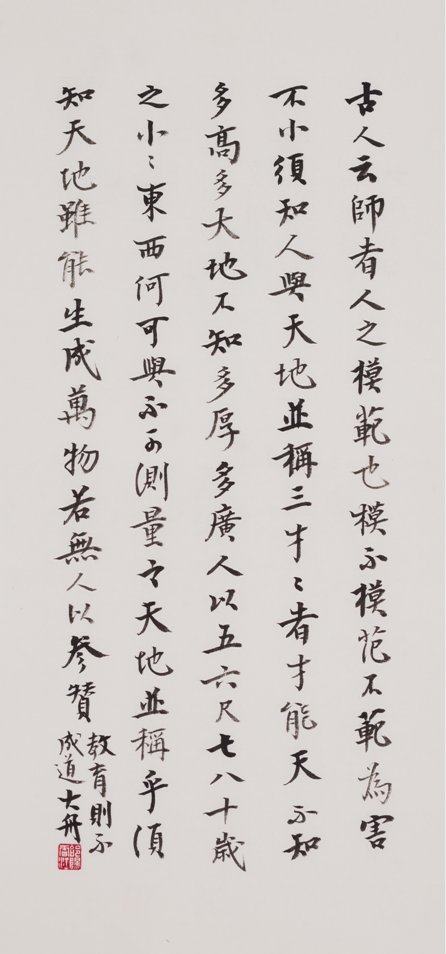 古人云師者人之模範也模不模范不範為害
不小須知人與天地並稱三才〻者才能天不知
多高多大地不知多厚多廣人以五六尺七八十歲
之小〻東西何可與不可測量之天地並稱乎須
知天地雖能生成萬物若無人以參贊
教育則不
成道大舟